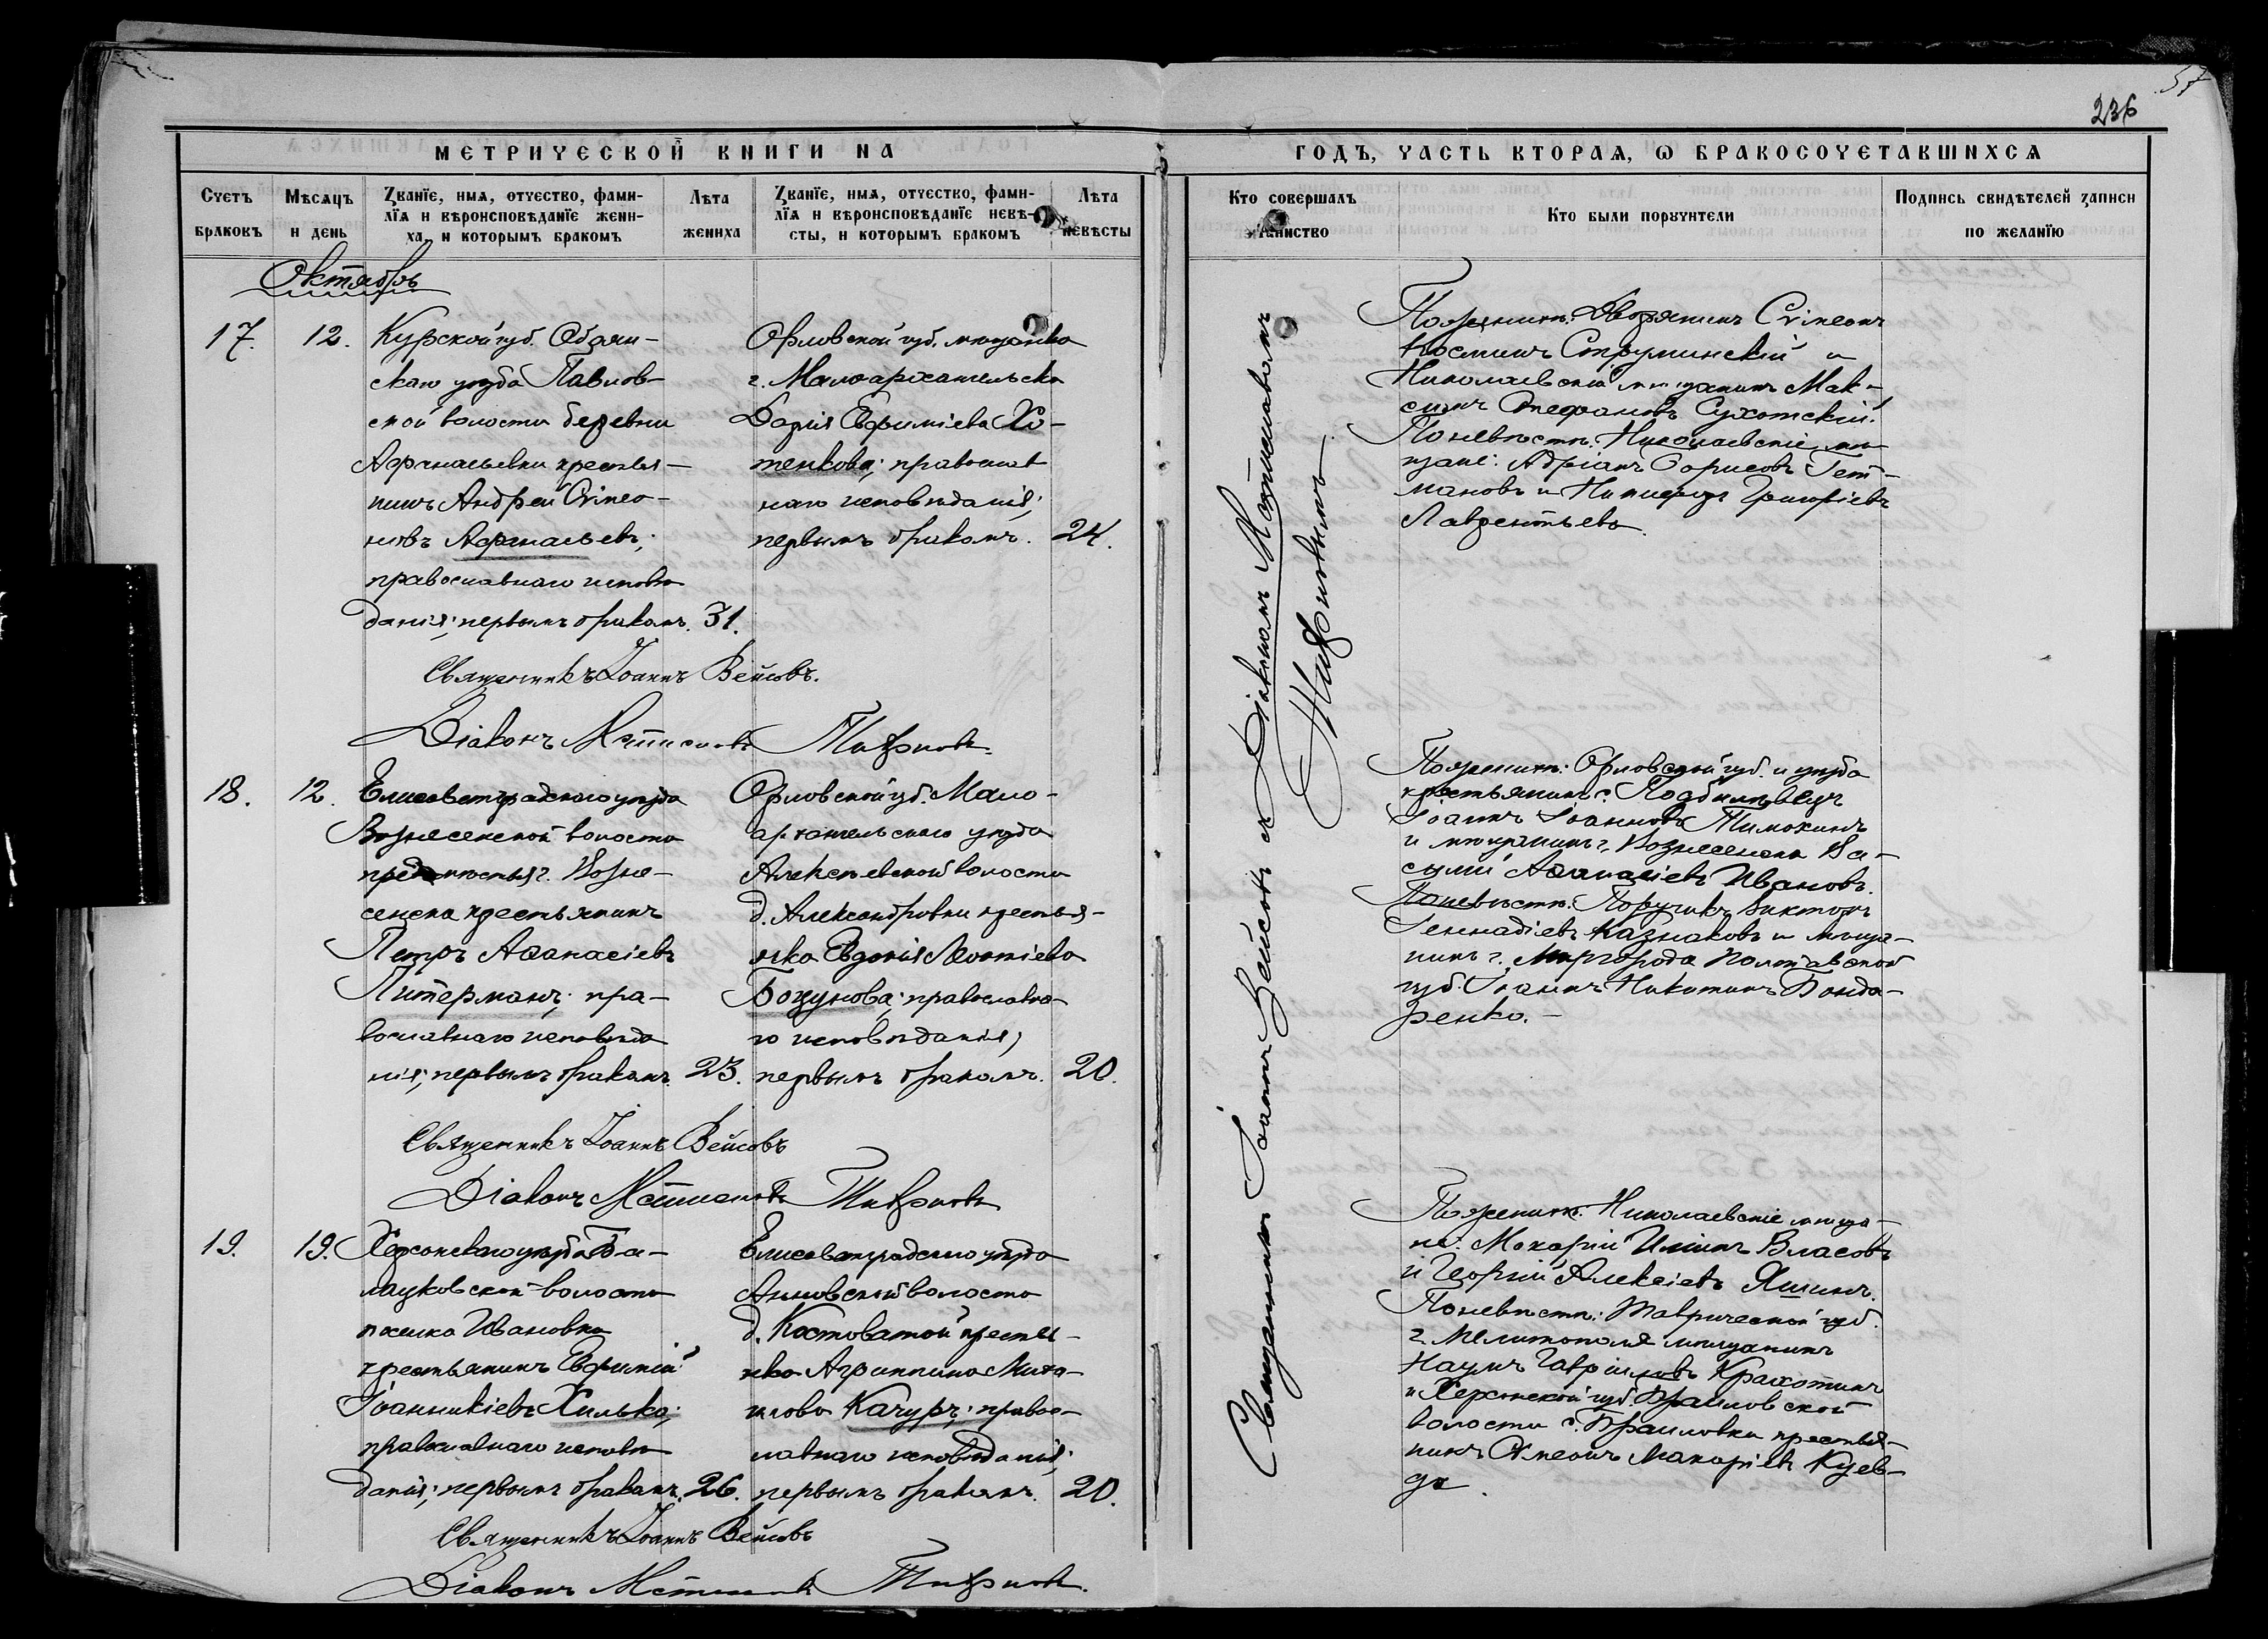 57
236
МЕТРИЧЕСКОЙ КНИГИ НА
ГОДЪ, ЧАСТЬ ВТОРАѦ, Ѡ БРАКОСОЧЕТАВШИХСѦ
Счетъ браковъ
Мѣсѧцъ и день
Званїе, имѧ, отчество, фами-
лїѧ и вѣроисповѣданїе жени-
ха, и которымъ бракомъ
Лѣта жениха
Званїе, имѧ, отчество, фами-
лїѧ и вѣроисповѣданїе невѣ-
сты, и которымъ бракомъ
Лѣта невѣсты
Кто совершалъ таинство
Кто были поручители
Подпись свидѣтелей записи
по желанїю
Октябрь
17.
12.
Курской губ. Обоян-
скаго уѣзда Павлов-
ской волости деревни
Афанасьевки крестья-
нинъ Андрей Сѵмео-
новъ Афанасьевъ;
православнаго исповѣ
данія; первымъ бракомъ.
31.
Орловской губ. мѣщанка
г. Малоархангельска
Дарія Евфиміева Хо-
тенкова; православ
наго исповѣданія;
первымъ бракомъ.
24.
Священникъ Іоаннъ Вейсовъ.
Діаконъ Мстиславъ
По женихѣ: Дворянинъ Сѵмеонъ
Косминъ Струминскій и
Николаевскій мѣщанинъ Мак-
симъ Стефановъ Сухотскій.
По невѣстѣ: Николаевскіе мѣ
щане: Адріанъ Борисовъ Гет-
мановъ и Никифоръ Григоріевъ
Лаврентьевъ.
18.
12.
Елисаветградскаго уѣзда
Вознесенской волости
предмѣстья г. Возне-
сенска крестьянинъ
Петръ Аѳанасіевъ
Литерманъ; пра-
вославнаго исповѣда
нія; первымъ бракомъ.
23.
Орловской губ. Мало-
архангельскаго уѣзда
Алексѣевской волости
д. Александровки крестья-
нка Евдокія Леонтіева
Боцунова; православна-
го исповѣданія;
первымъ бракомъ.
20.
Священникъ Іоаннъ Вейсовъ
Діаконъ Мстиславъ
По женихѣ: Орловской губ. и уѣзда
крестьянинъ
Іоаннъ Іоанновъ Тимохинъ
и мѣщанинъ г. Вознесенска Ва-
силій Аѳанасіевъ Ивановъ.
По невѣстѣ: Поручикъ Викторъ
Геннадіевъ Казнаковъ и мѣща-
нинъ г. Миргорода Полтавской
губ. Іоаннъ Никитинъ Бонда-
ренко.
19.
19.
Херсонскаго уѣзда Ба-
лацковской волости
поселка Ивановка
крестьянинъ Евфимій
Іоанникіевъ Хилько;
православнаго исповѣ
данія; первымъ бракомъ.
26.
Елисаветградскаго уѣзда
Анновской волости
д. Костоватой крестья-
нка Агриппина Миха-
илова Качуръ; право-
славнаго исповѣданія;
первымъ бракомъ.
20.
Священникъ Іоаннъ Вейсовъ
Діаконъ Мстиславъ
По женихѣ: Николаевскіе мѣща-
не: Макарій Иліинъ Власовъ
и Георгій Алексіевъ Яшинъ.
По невѣстѣ: Таврической губ.
г. Мелитополя мѣщанинъ
Наумъ Гавріиловъ Крахотинъ
и Херсонской губ. Браиловской
волости с. Браиловки крестья-
нинъ Сѵмеонъ Макаріевъ Куев-
да.
Священникъ Іоаннъ Вейсовъ и Діаконъ Мстиславъ